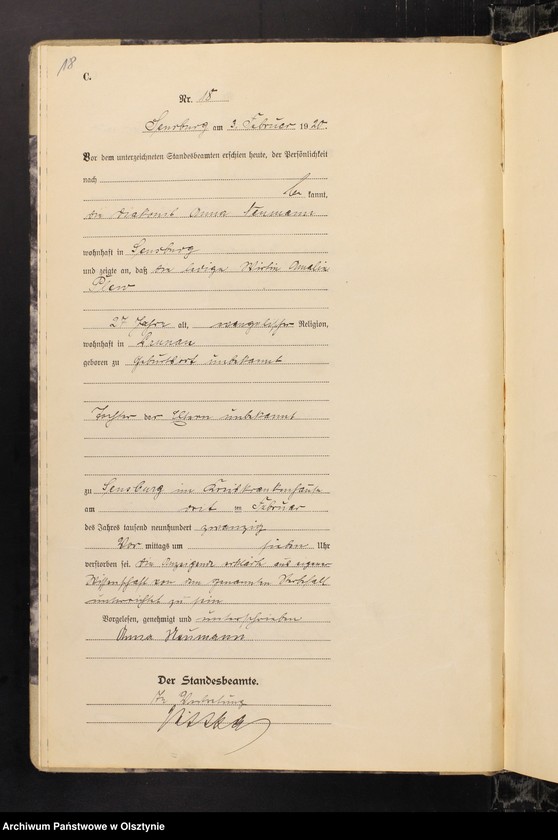 18
C.
Nr. 18
Sensburg am 3. Februar 1920.
Vor dem unterzeichneten Standesbeamten erschien heute, der Persönlichkeit
nach
be kannt,
die Diakonis Anna Neumann
wohnhaft in Sensburg
und zeigte an, daß die ledige Wirtin Amalie
Plew
27 Jahre alt, evangelischer Religion,
wohnhaft in
geboren zu Geburtsort unbekannt
Tochter der Eltern unbekannt
zu Sensburg im Kreiskrankenhause
am ten Februar
des Jahres tausend neunhundert zwanzig
Vor mittags um sieben Uhr
verstorben sei. Die Anzeigende erklärte aus eigener
Wissenschaft von dem genannten Sterbefall
unterrichtet zu sein
Vorgelesen, genehmigt und unterschrieben
Anna Neumann
Der Standesbeamte.
In Vertretung
Archiwum Państwowe w Olsztynie